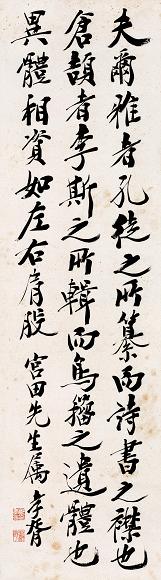 夫爾雅者孔徒之所纂而詩書之襟也
倉頡者李斯之所輯而鳥籀之遺體也
異體相資如左右肩股 宮田先生屬 孝胥